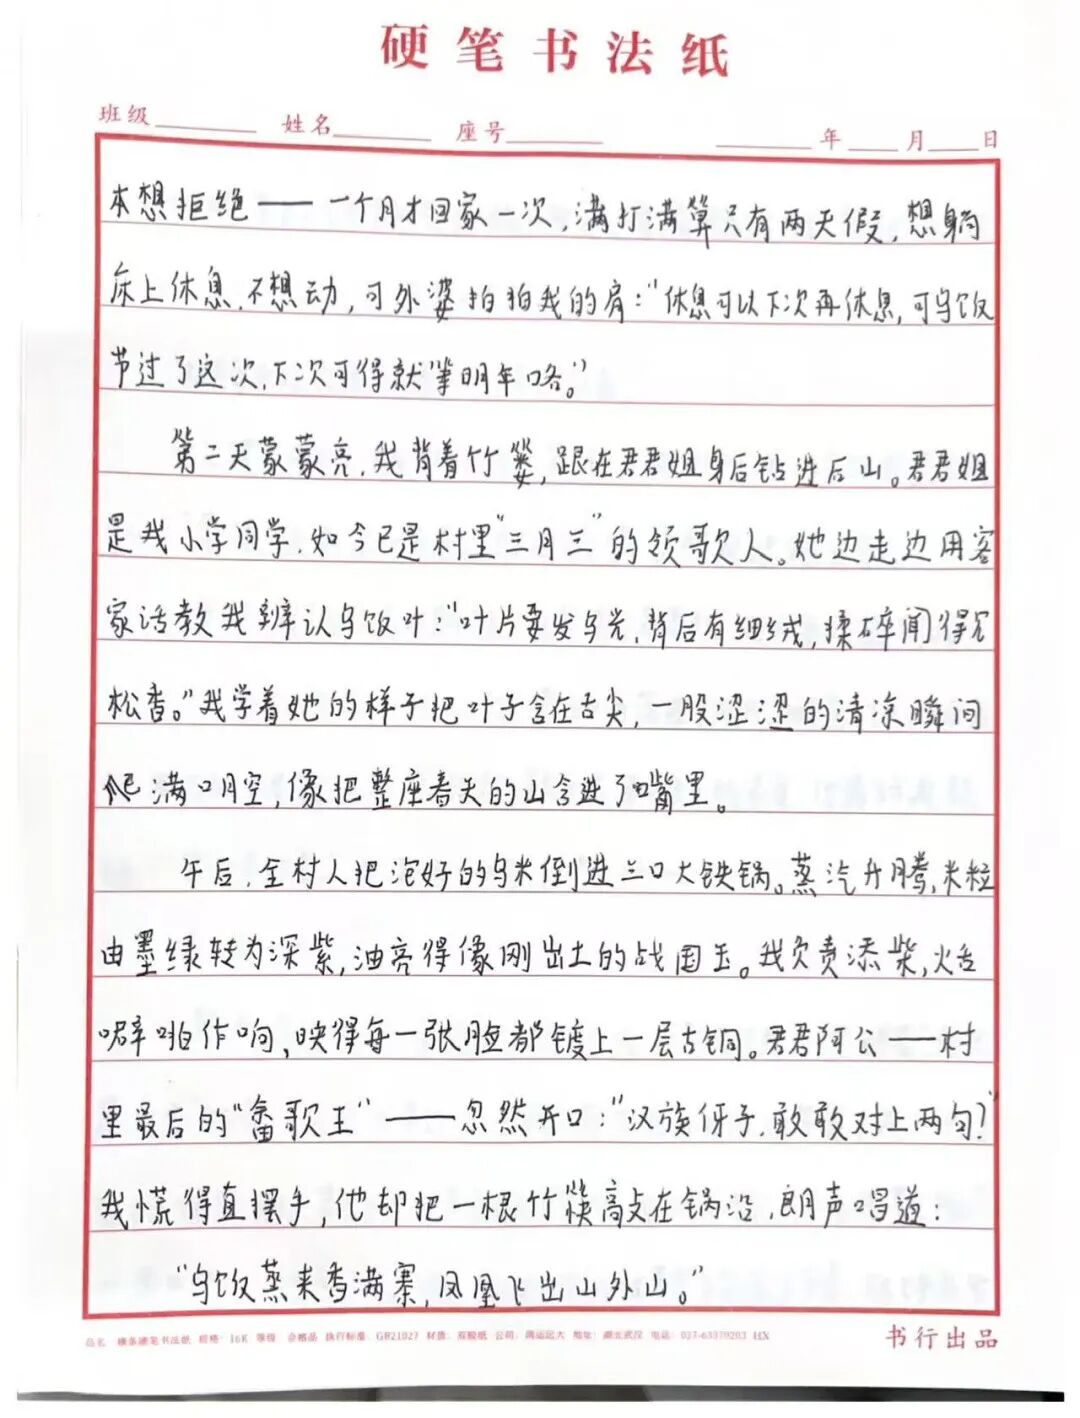 硬笔书法纸
班级 姓名 座号 年 月 日
本想拒绝——一个月才回家一次,满打满算只有两天假,想躺
床上休息,不想动,可外婆拍拍我的肩:“休息可以下次再休息,可乌饭
节过了这次,下次可得就等明年咯。”
第二天蒙蒙亮,我背着竹篓,跟在君君姐身后钻进后山。君君姐
是我小学同学,如今已是村里“三月三”的领歌人。她边走边用客
家话教我辨认乌饭叶:“叶片要发乌光,背后有细绒,揉碎闻得见
松香。”我学着她的样子把叶子含在舌尖,一股涩涩的清凉瞬间
爬满口腔,像把整座春天的山含进了嘴里。
午后,全村人把泡好的乌米倒进三口大铁锅。蒸汽升腾,米粒
由墨绿转为深紫,油亮得像刚出土的战国玉。我负责添柴,火舌
噼啪作响,映得每一张脸都镀上一层古铜。君君阿公——村
里最后的“畲歌王”——忽然开口:“汉族伢子,敢敢对上两句?”
我慌得直摆手,他却把一根竹筷敲在锅沿,朗声唱道:
“乌饭蒸来香满寨,凤凰飞出山外山。”
品名 横条硬笔书法纸 规格 16K 等级 合格品 执行标准 GB21027 材质 双胶纸 地址 湖北武汉 电话 HX
书行出品